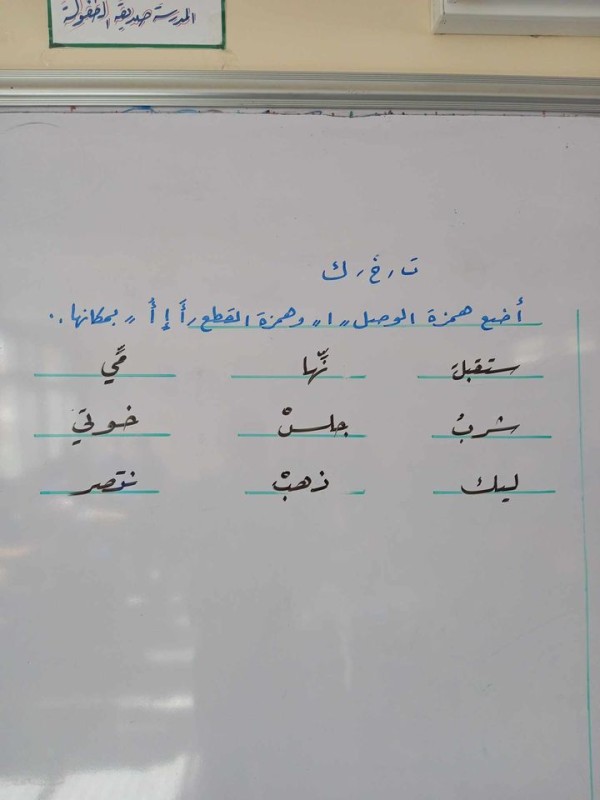 المدرسة صديقة الطفولة
ت ، خ ، ك
أضع همزة الوصل " ا " وهمزة القطع " أَ إِ أُ " بمكانها ..
ستقبلَ نّها مّي
شربُ جلسْ خوتي
ليك ذهبْ نتصر